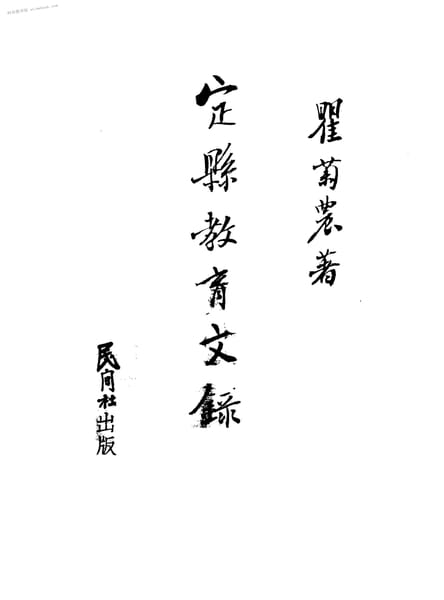 瞿菊農著
定縣教育文錄
民间社出版